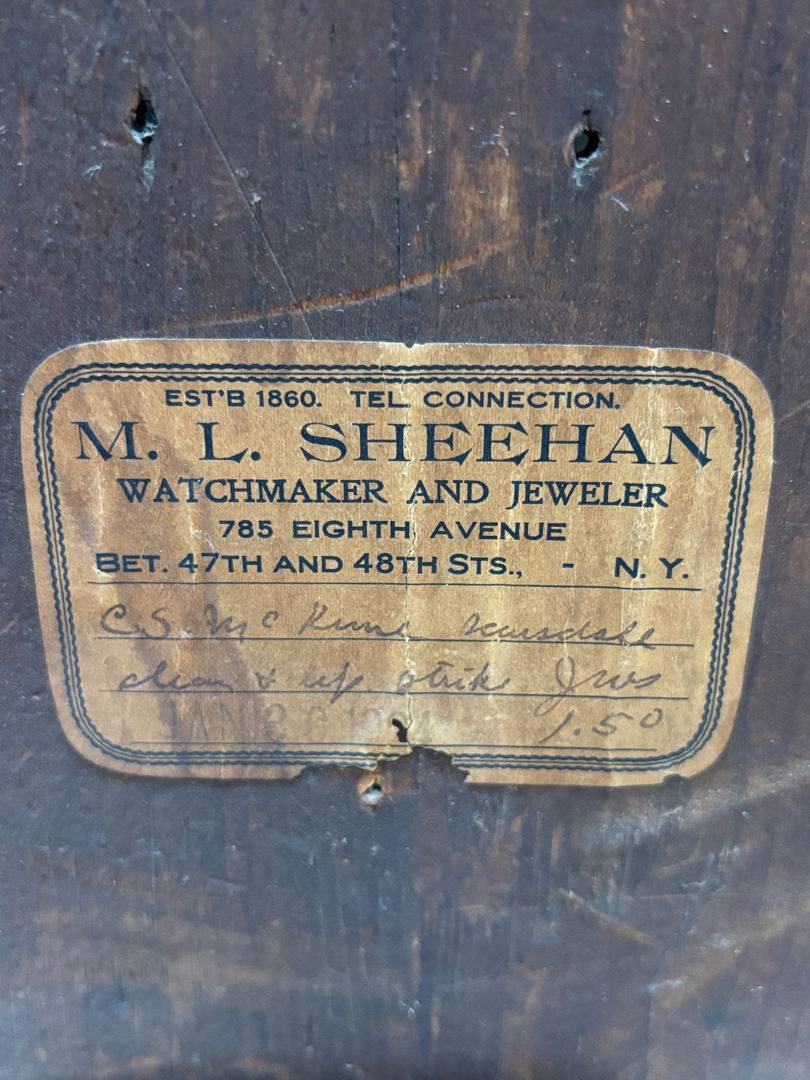 EST'B 1860. TEL. CONNECTION.
M. L. SHEEHAN
WATCHMAKER AND JEWELER
785 EIGHTH AVENUE
BET. 47TH AND 48TH STS., - N. Y.
C.S. Mc
clean & up strike
JAN
1.50